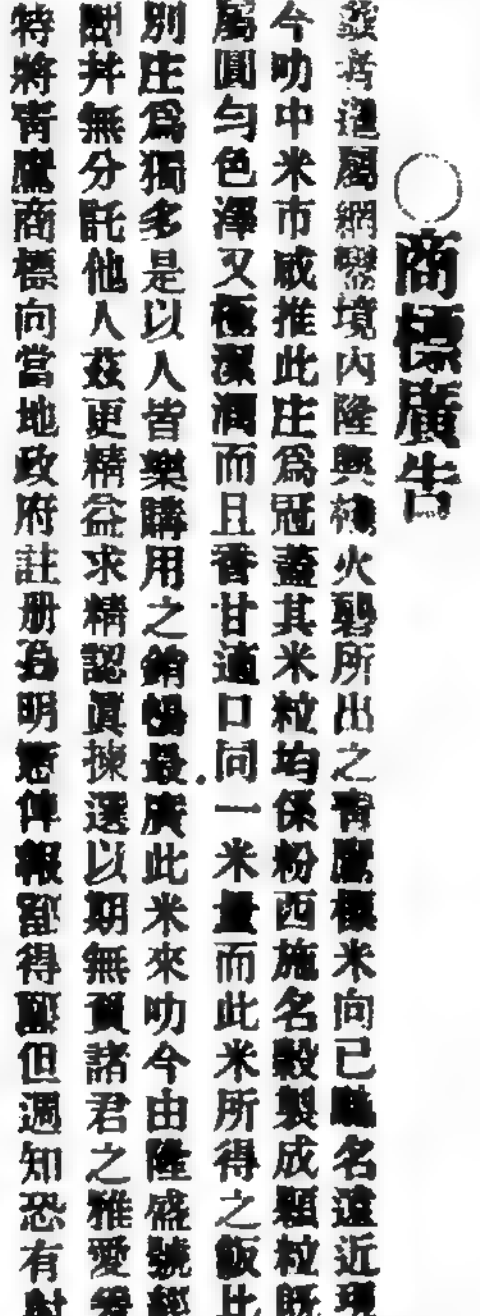 ○商標廣告
啟者暹屬網鑾境內隆興棧火礱所出之青鷹標米向已馳名遠近現
今叻中米市咸推此庄爲冠蓋其米粒均係粉西施名穀製成顆粒既
屬圓勻色澤又極深潤而且香甘適口同一米量而此米所得之飯比
別庄爲獨多是以人皆樂購用之銷場最廣此米來叻今由隆盛號經
并無分託他人茲更精益求精認眞揀選以期無負諸君之雅愛爰
特將青鷹商標向當地政府註册爲明憑俾報得但週知恐有射